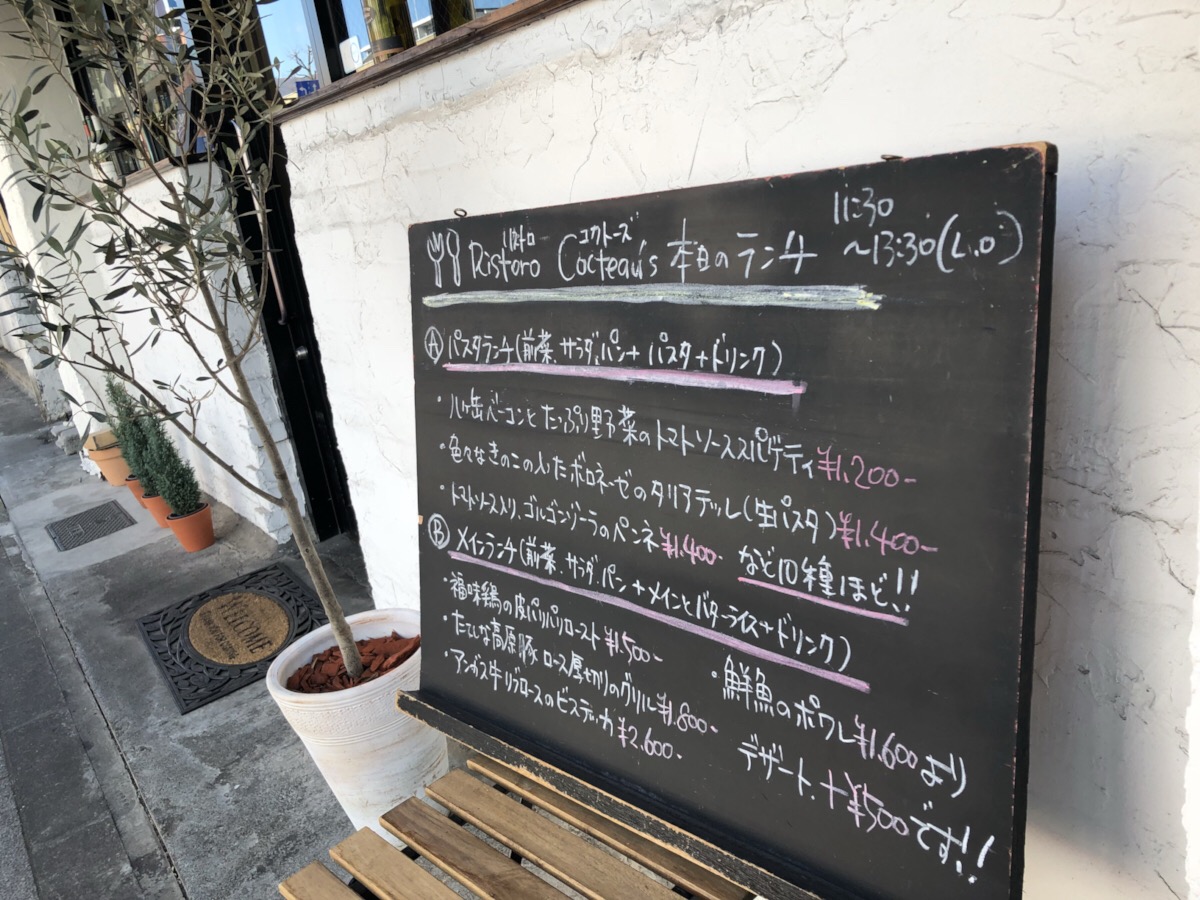 リストロ コクトーズ 11:30
Ristoro Cocteau's 本日のランチ ～13:30(L.O)
Ⓐパスタランチ(前菜、サラダ、パン+パスタ+ドリンク)
・八ヶ岳ベーコンとたっぷり野菜のトマトソーススパゲティ¥1.200-
・色々なきのこの入ったボロネーゼのタリアテッレ(生パスタ)¥1.400-
・トマトソース入り、ゴルゴンゾーラのペンネ¥1.400- など10種ほど!!
Ⓑメインランチ(前菜、サラダ、パン+メインとバターライス+ドリンク)
・福味鶏の皮パリパリロースト¥1.500-
・たてしな高原豚ロース厚切りのグリル¥1.800-
・アンガス牛リブロースのビステッカ¥2.600-
・鮮魚のポワレ¥1.600より
デザート、+¥500です!!
WELCOME